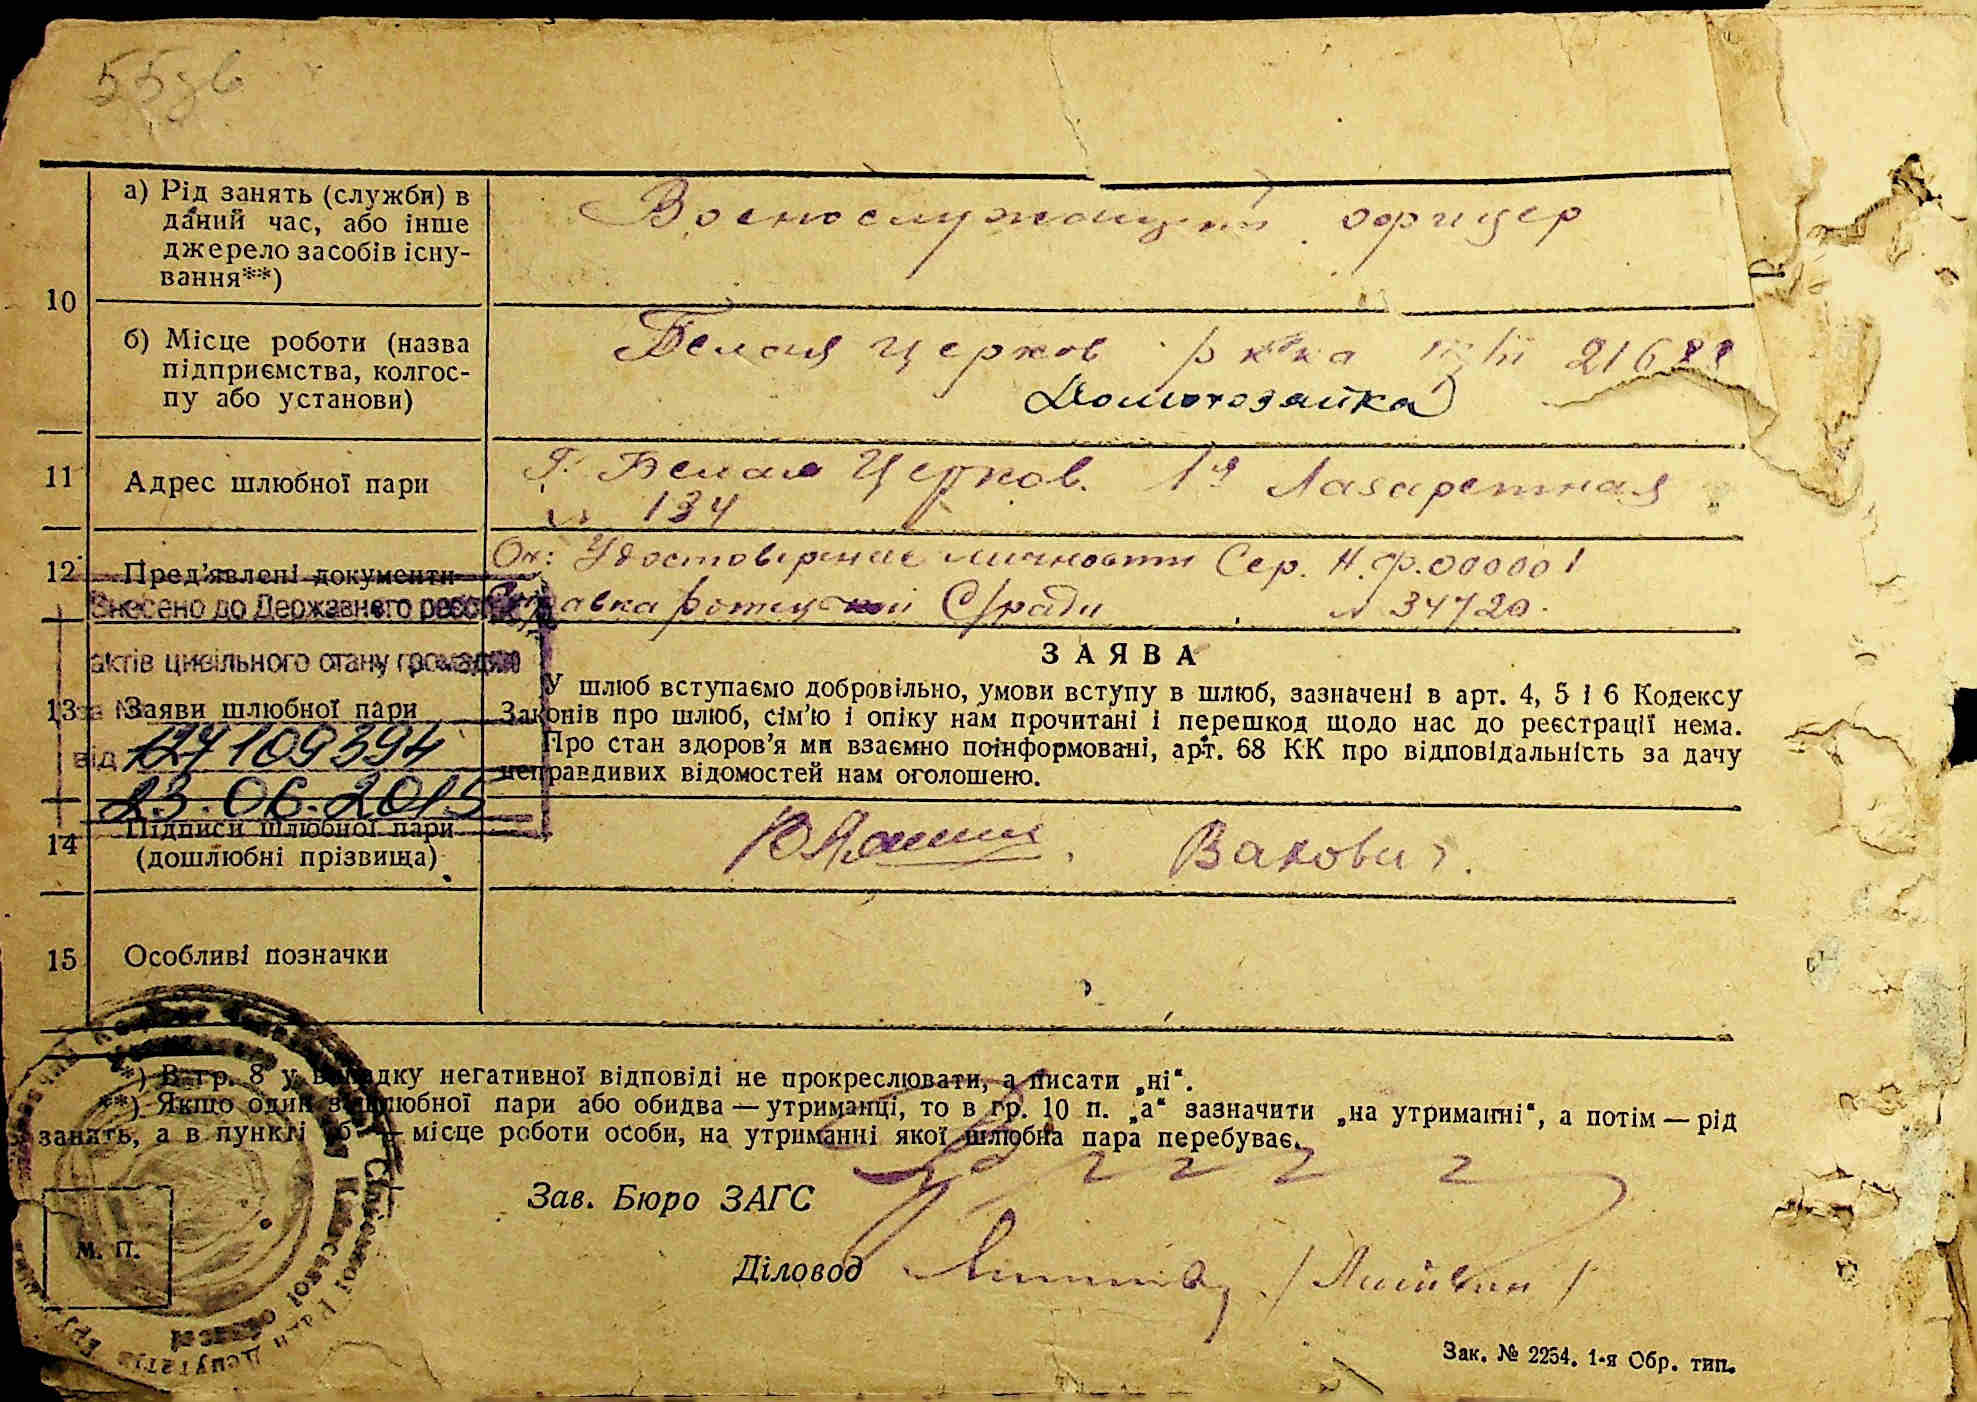 10
а) Рід занять (служби) в
даний час, або інше
джерело засобів існу-
вання**)
Военослужащий офицер
б) Місце роботи (назва
підприємства, колгос-
пу або установи)
Белая Церков ркка п/п 21688
Домохозяйка
11
Адрес шлюбної пари
г. Белая Церков. 1я Лазаретная
№ 134
12
Пред'явлені документи
Он: Удостоверение личности Сер. Н.Ф.000001
С/ради № 34720.
Внесено до Державного реєстру
актів цивільного стану громадян
за №
від 127109394
23.06.2015
13
Заяви шлюбної пари
ЗАЯВА
У шлюб вступаємо добровільно, умови вступу в шлюб, зазначені в арт. 4, 5 і 6 Кодексу
Законів про шлюб, сім'ю і опіку нам прочитані і перешкод щодо нас до реєстрації нема.
Про стан здоров'я ми взаємно поінформовані, арт. 68 КК про відповідальність за дачу
неправдивих відомостей нам оголошено.
14
Підписи шлюбної пари
(дошлюбні прізвища)
Вакович.
15
Особливі позначки
*) В гр. 8 у випадку негативної відповіді не прокреслювати, а писати „ні“.
**) Якщо один з шлюбної пари або обидва — утриманці, то в гр. 10 п. „а“ зазначити „на утриманні“, а потім — рід
занять, а в пункті „б“ — місце роботи особи, на утриманні якої шлюбна пара перебуває.
Зав. Бюро ЗАГС
М. П.
Діловод
/Литвин/
Київської області
Зак. № 2254. 1-я Обр. тип.